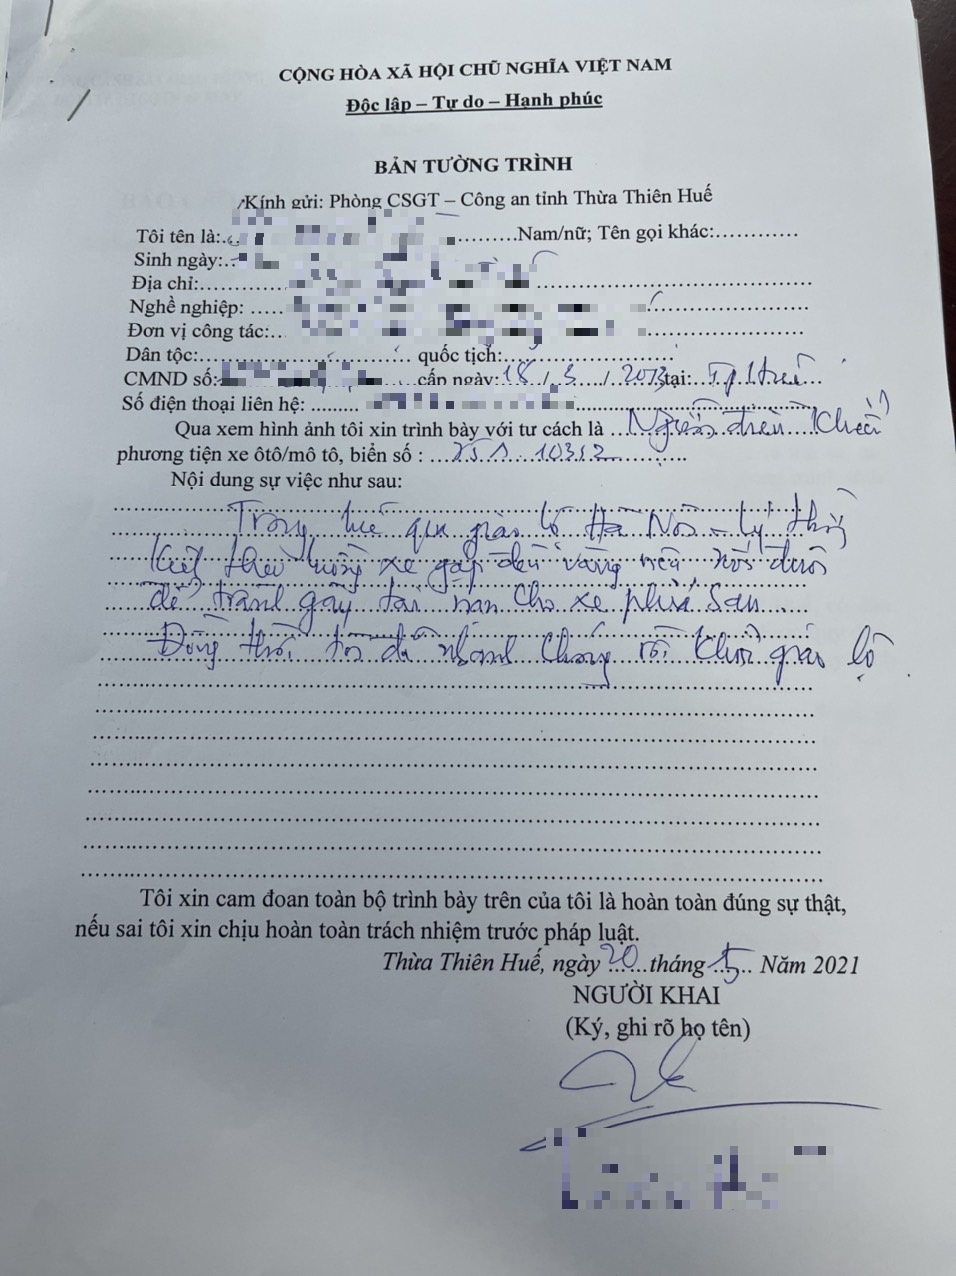 CỘNG HÒA XÃ HỘI CHỦ NGHĨA VIỆT NAM
Độc lập – Tự do – Hạnh phúc
BẢN TƯỜNG TRÌNH
Kính gửi: Phòng CSGT – Công an tỉnh Thừa Thiên Huế
Tôi tên là:..................Nam/nữ; Tên gọi khác:............
Sinh ngày:..
Địa chỉ:............
Nghề nghiệp: .....
Đơn vị công tác:...
Dân tộc:.............. quốc tịch:..............
CMND số: cấp ngày: 18 / 3 / 2013 tại: Tp Huế
Số điện thoại liên hệ: .........
Qua xem hình ảnh tôi xin trình bày với tư cách là Người điều khiển
phương tiện xe ôtô/mô tô, biển số : 10312
Nội dung sự việc như sau:
Trong qua giao lộ Hà Nội - Lý thường
Kiệt theo luồng xe gặp đèn vàng nên nối đuôi
để tránh gây tai nạn cho xe phía sau
Đồng thời tôi đã nhanh chóng rời khỏi giao lộ
Tôi xin cam đoan toàn bộ trình bày trên của tôi là hoàn toàn đúng sự thật,
nếu sai tôi xin chịu hoàn toàn trách nhiệm trước pháp luật.
Thừa Thiên Huế, ngày 20 tháng 5 Năm 2021
NGƯỜI KHAI
(Ký, ghi rõ họ tên)